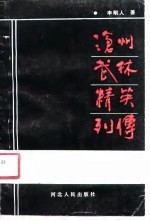 申明人 著
沧州
武林
精英
列傳
河北人民出版社